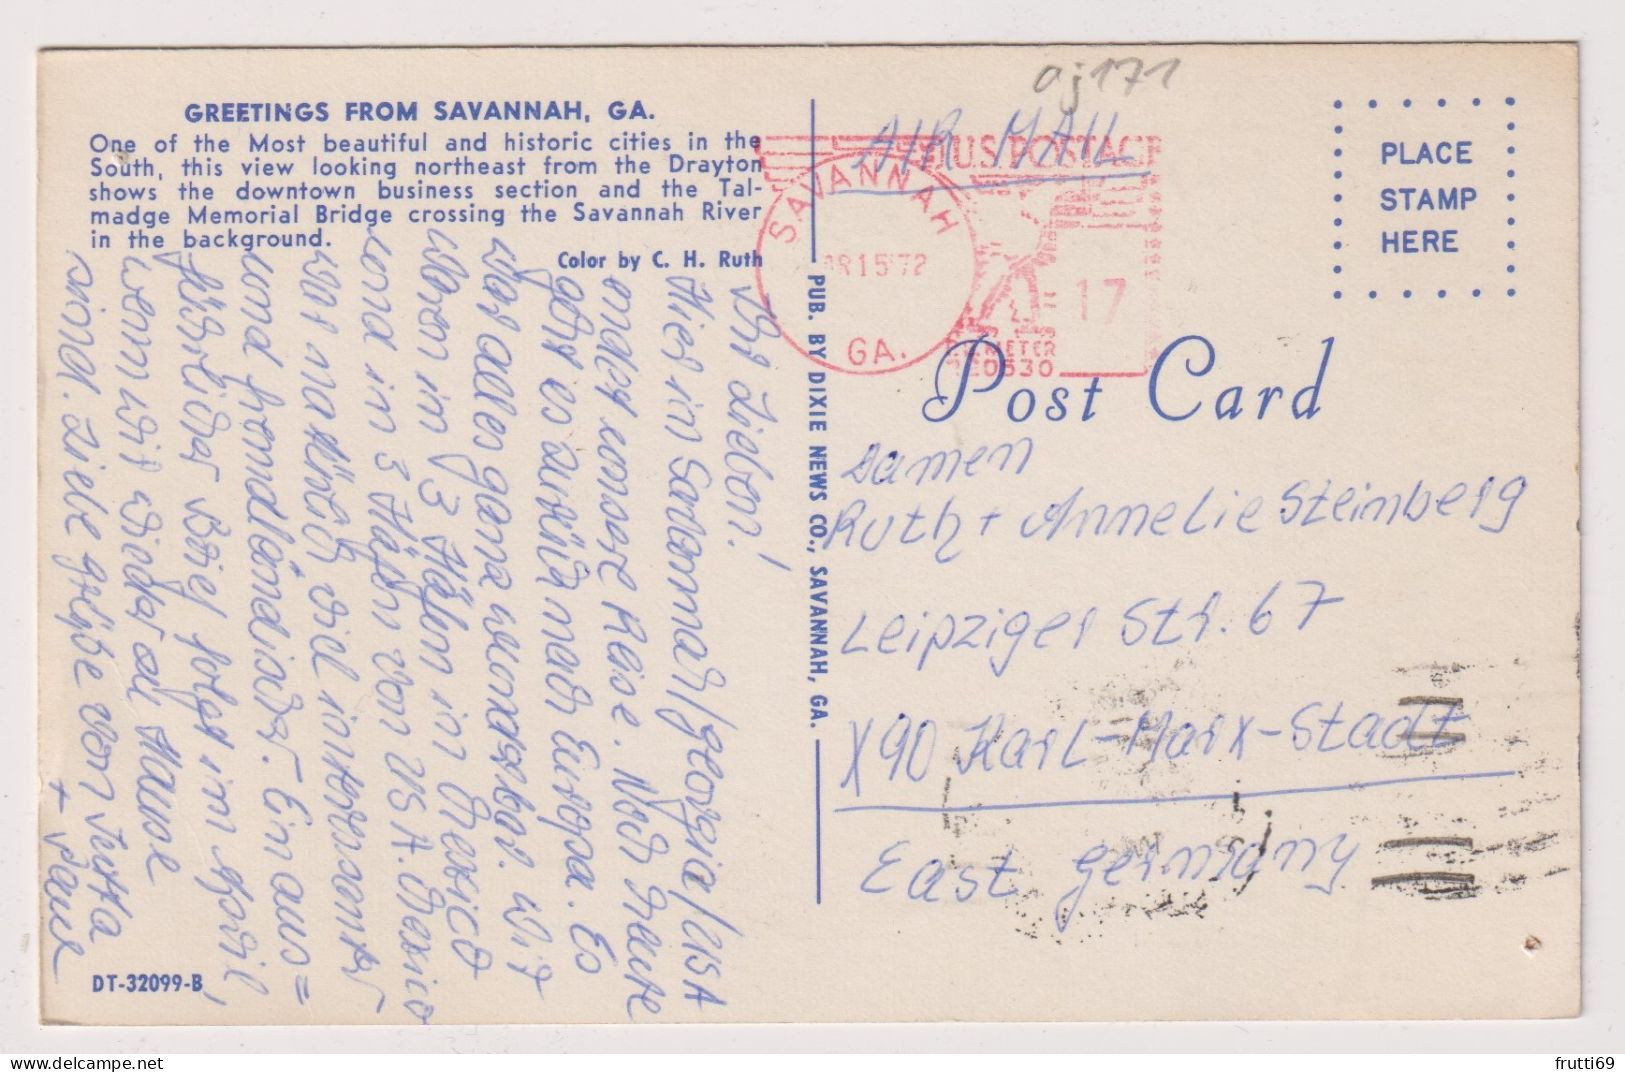 GREETINGS FROM SAVANNAH, GA.
One of the Most beautiful and historic cities in the
South, this view looking northeast from the Drayton
shows the downtown business section and the Tal-
madge Memorial Bridge crossing the Savannah River
in the background.
Color by C. H. Ruth
Ihr Lieben!
Hier in Savannah/Georgia/USA
endet unsere Reise. Noch heute
geht es zurück nach Europa. Es
War alles ganz wunderbar. Wir
Waren in 3 Häfen in Mexico
und in 3 Häfen von USA. Mexico
war natürlich viel interessanter
und fremdländischer. Ein aus=
führlicher Brief folgt im April,
wenn wir wieder zu Hause
sind. Liebe Grüße von Jutta
+ Paul
DT-32099-B
PUB. BY DIXIE NEWS CO., SAVANNAH, GA.
aj171
AIR MAIL
U.S. POSTAGE
SAVANNAH
GA.
15 '72
17
METER
PLACE
STAMP
HERE
Post Card
Damen
Ruth + Annelie Steinberg
Leipziger Str. 67
X90 Karl-Marx-Stadt
East Germany
delcampe.net
frutti69